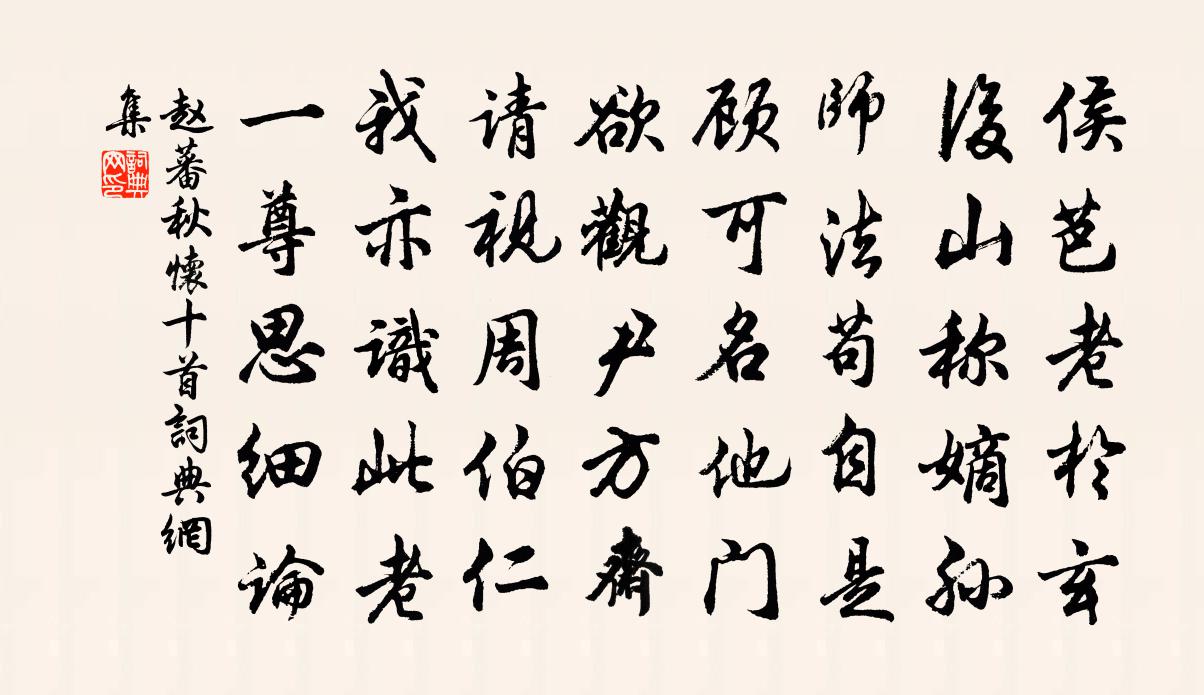 侯芭老於玄
後山称嫡孙
師法苟自是
顾可名他门
欲觀尹方齋
请視周伯仁
我亦識此老
一尊思细論
赵蕃秋懷十首詞典網
集
詞典網印